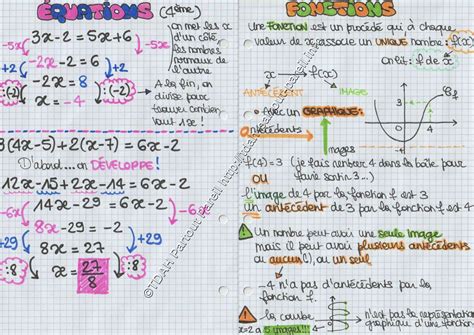 ÉQUATIONS (4ème)
3x-2 = 5x+6
-5x -5x
-2x-2 = 6
+2 +2
-2x = 8
:(-2) :(-2)
x = -4
on met les x
d'un côté,
les nombres
normaux de
l'autre.
A la fin, on
divise pour
trouver combien
vaut 1x
3(4x-5)+2(x-7) = 6x-2
D'abord.... on DÉVELOPPE!
12x-15+2x-14 = 6x-2
-6x -6x
8x-29 = -2
+29 +29
8x = 27
:8 :8
x = 27/8
©TDAH Partout pareil
FONCTIONS
Une FONCTION est un procédé qui à chaque
valeur de x associe un UNIQUE nombre : f(x)
on lit : f de x
x f(x)
ANTÉCÉDENT IMAGE
• Avec un GRAPHIQUE:
antécédents
images
3
4
Cf
f(4) = 3 (je fais rentrer 4 dans la boîte pour
faire sortir 3...)
OU
l'image de 4 par la fonction f est 3
un antécédent de 3 par la fonction f est 4
Un nombre peut avoir une seule image
mais il peut avoir plusieurs antécédents
ou aucun(!), ou un seul
-4 n'a pas d'antécédents par la
fonction f.
la courbe n'est pas la représentation
graphique d'une fonction
x=2 a 5 images!!!